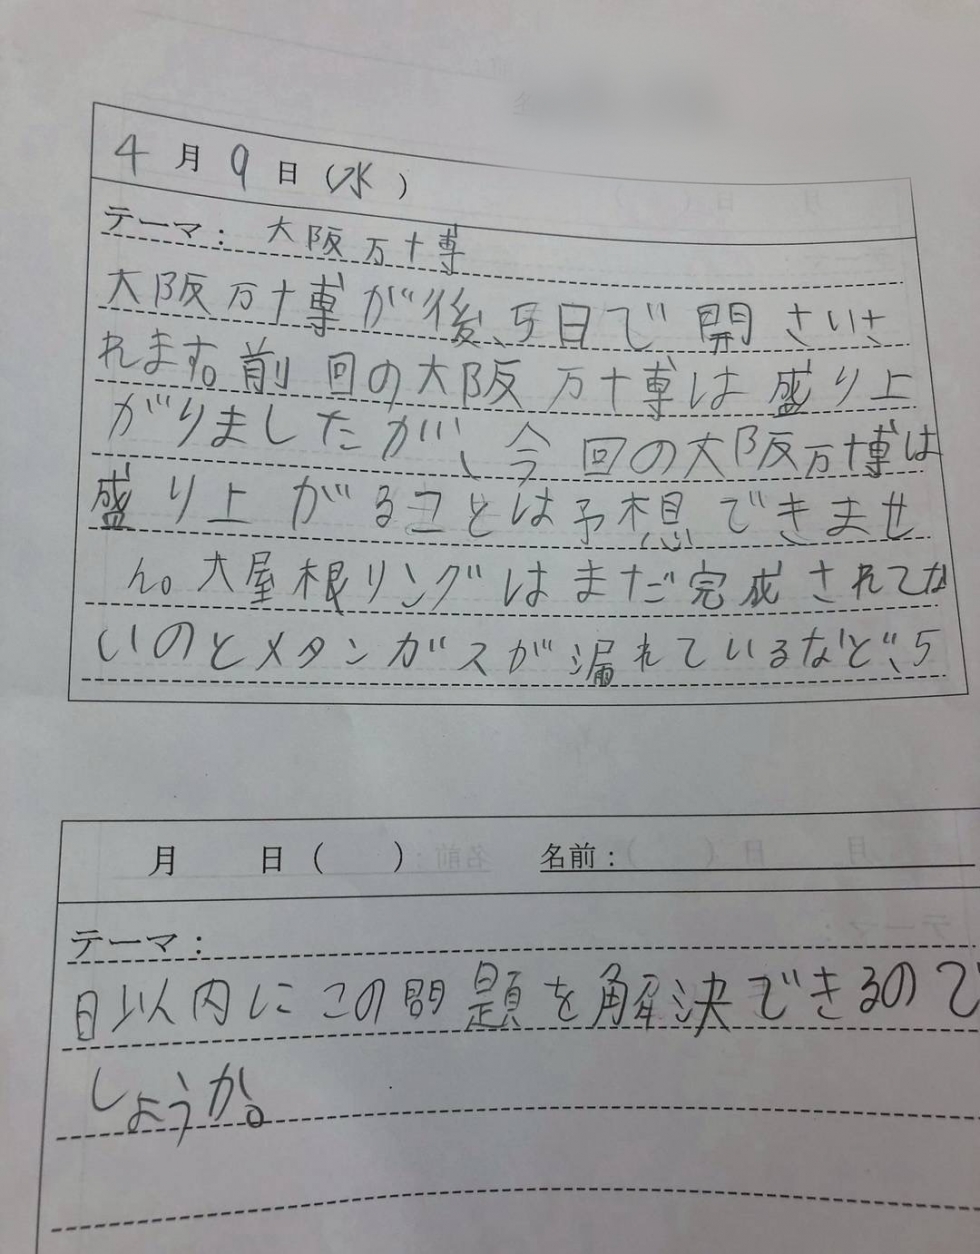 4月9日(水)
テーマ: 大阪万博
大阪万博が後、5日で開さいさ
れます。前回の大阪万博は盛り上
がりましたが、今回の大阪万博は
盛り上がることは予想できませ
ん。大屋根リングはまだ完成されてな
いのとメタンガスが漏れているなど、5
月 日( ) 名前:
テーマ:
日以内にこの問題を解決できるので
しょうか。